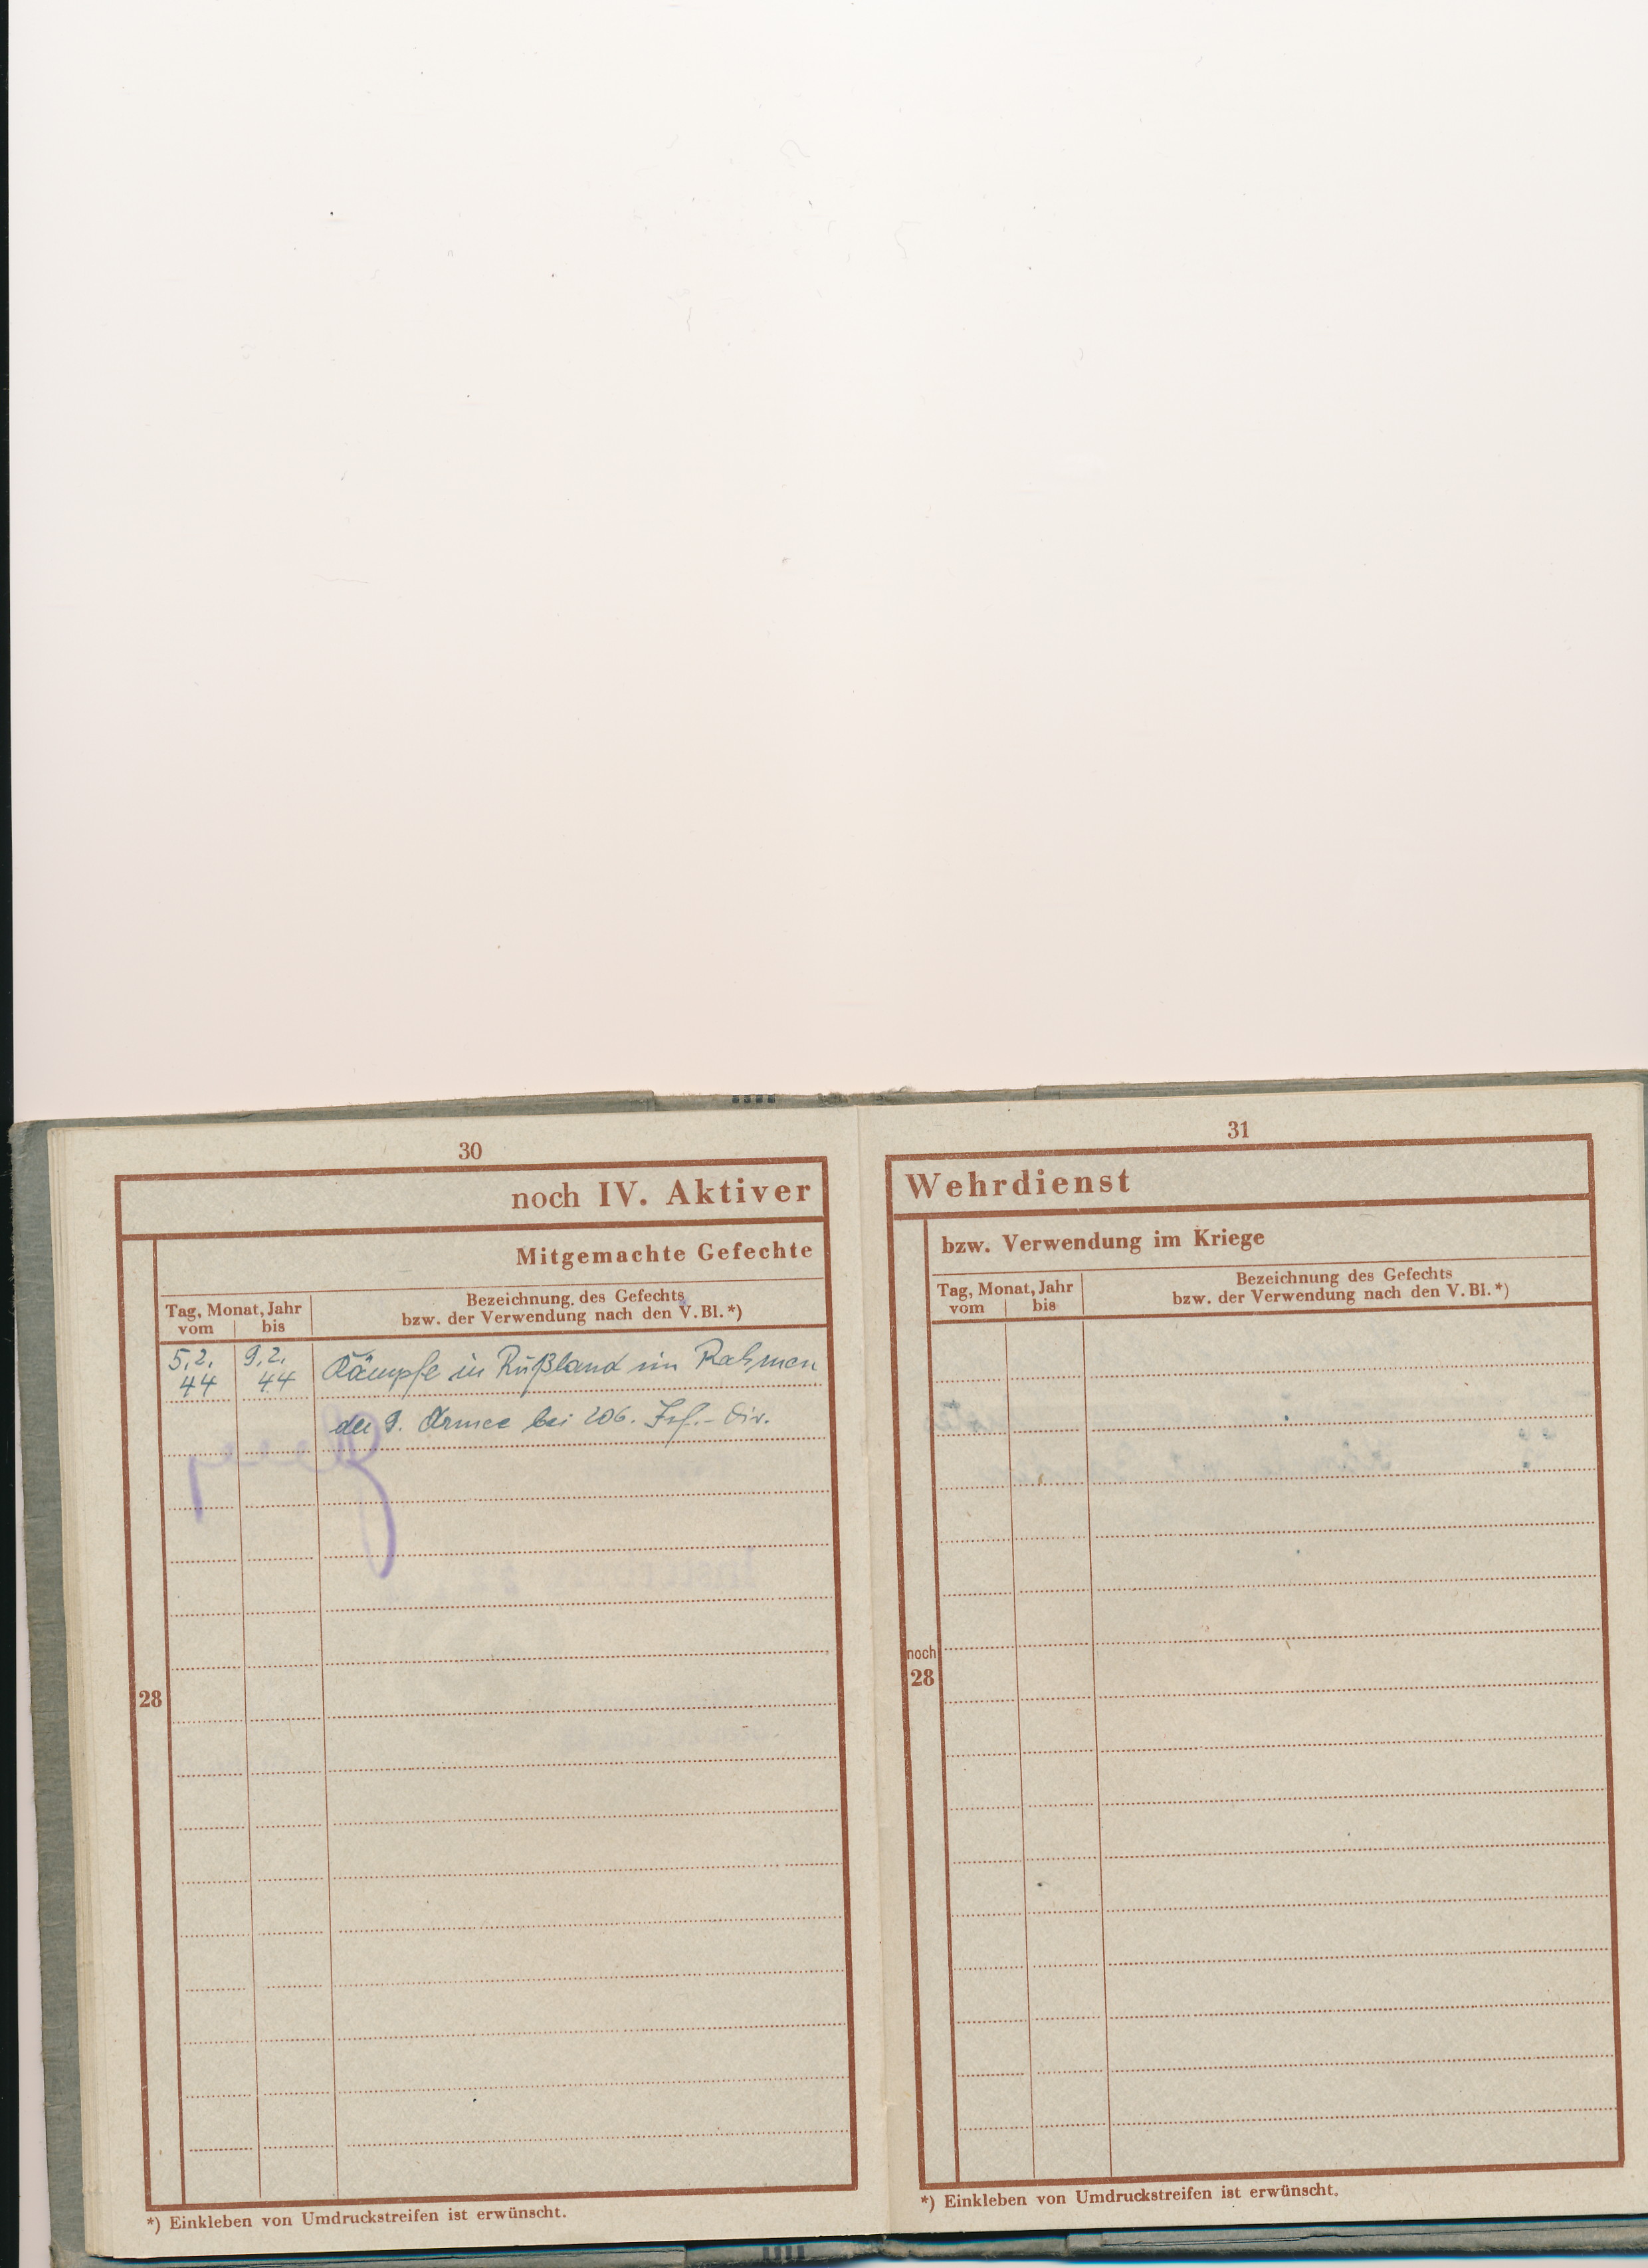 30
noch IV. Aktiver
Mitgemachte Gefechte
Tag, Monat, Jahr
vom bis
Bezeichnung des Gefechts
bzw. der Verwendung nach den V. Bl. *)
5.2. 9.2. Kämpfe in Rußland im Rahmen
44 44
der 9. Armee bei 206. Inf.-Div.
28
*) Einkleben von Umdruckstreifen ist erwünscht.
31
Wehrdienst
bzw. Verwendung im Kriege
Tag, Monat, Jahr
vom bis
Bezeichnung des Gefechts
bzw. der Verwendung nach den V. Bl. *)
noch
28
*) Einkleben von Umdruckstreifen ist erwünscht.